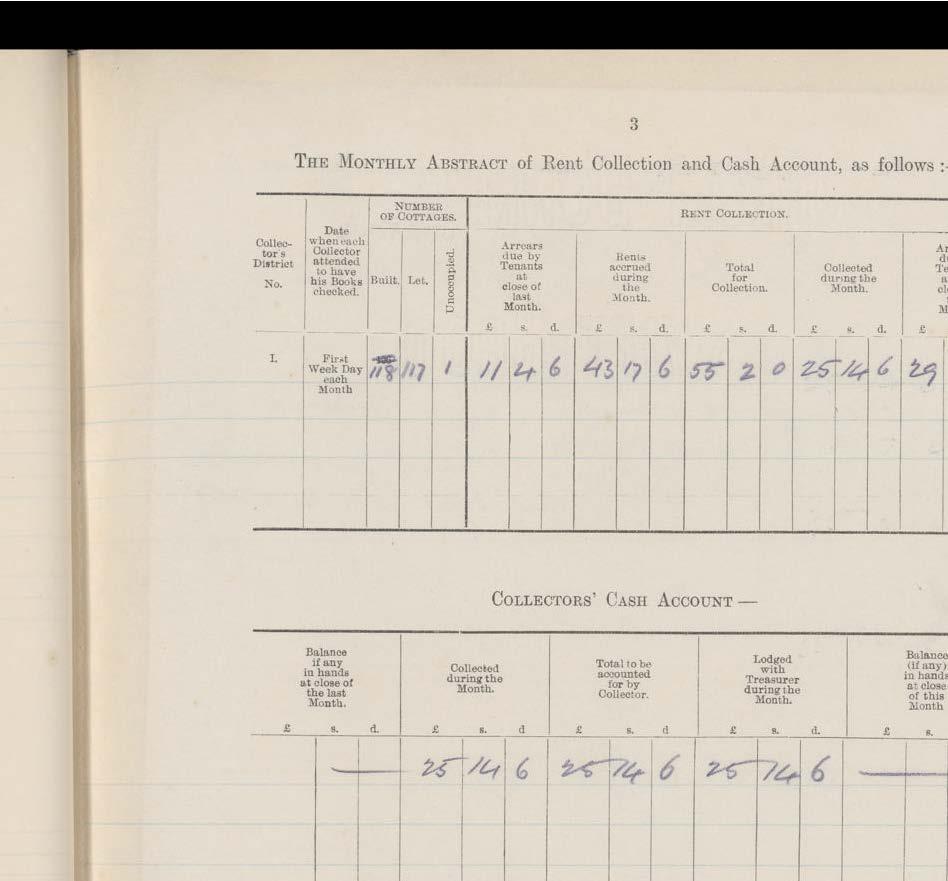 3
THE MONTHLY ABSTRACT of Rent Collection and Cash Account, as follows :-
NUMBER OF COTTAGES.
RENT COLLECTION.
Collec-
tor's
District
No.
Date
when each
Collector
attended
to have
his Books
checked.
Built.
Let.
Unoccupied.
Arrears
due by
Tenants
at
close of
last
Month.
Rents
accrued
during
the
Month.
Total
for
Collection.
Collected
during the
Month.
£ s. d. £ s. d. £ s. d. £ s. d. £
I. First
Week Day
each
Month
118 117 1 11 2 6 43 17 6 55 2 0 25 14 6 29
COLLECTORS' CASH ACCOUNT —
Balance
if any
in hands
at close of
the last
Month.
Collected
during the
Month.
Total to be
accounted
for by
Collector.
Lodged
with
Treasurer
during the
Month.
Balance
(if any)
in hands
at close
of this
Month
£ s. d. £ s. d £ s. d £ s. d. £ s.
— 25 14 6 25 14 6 25 14 6 —